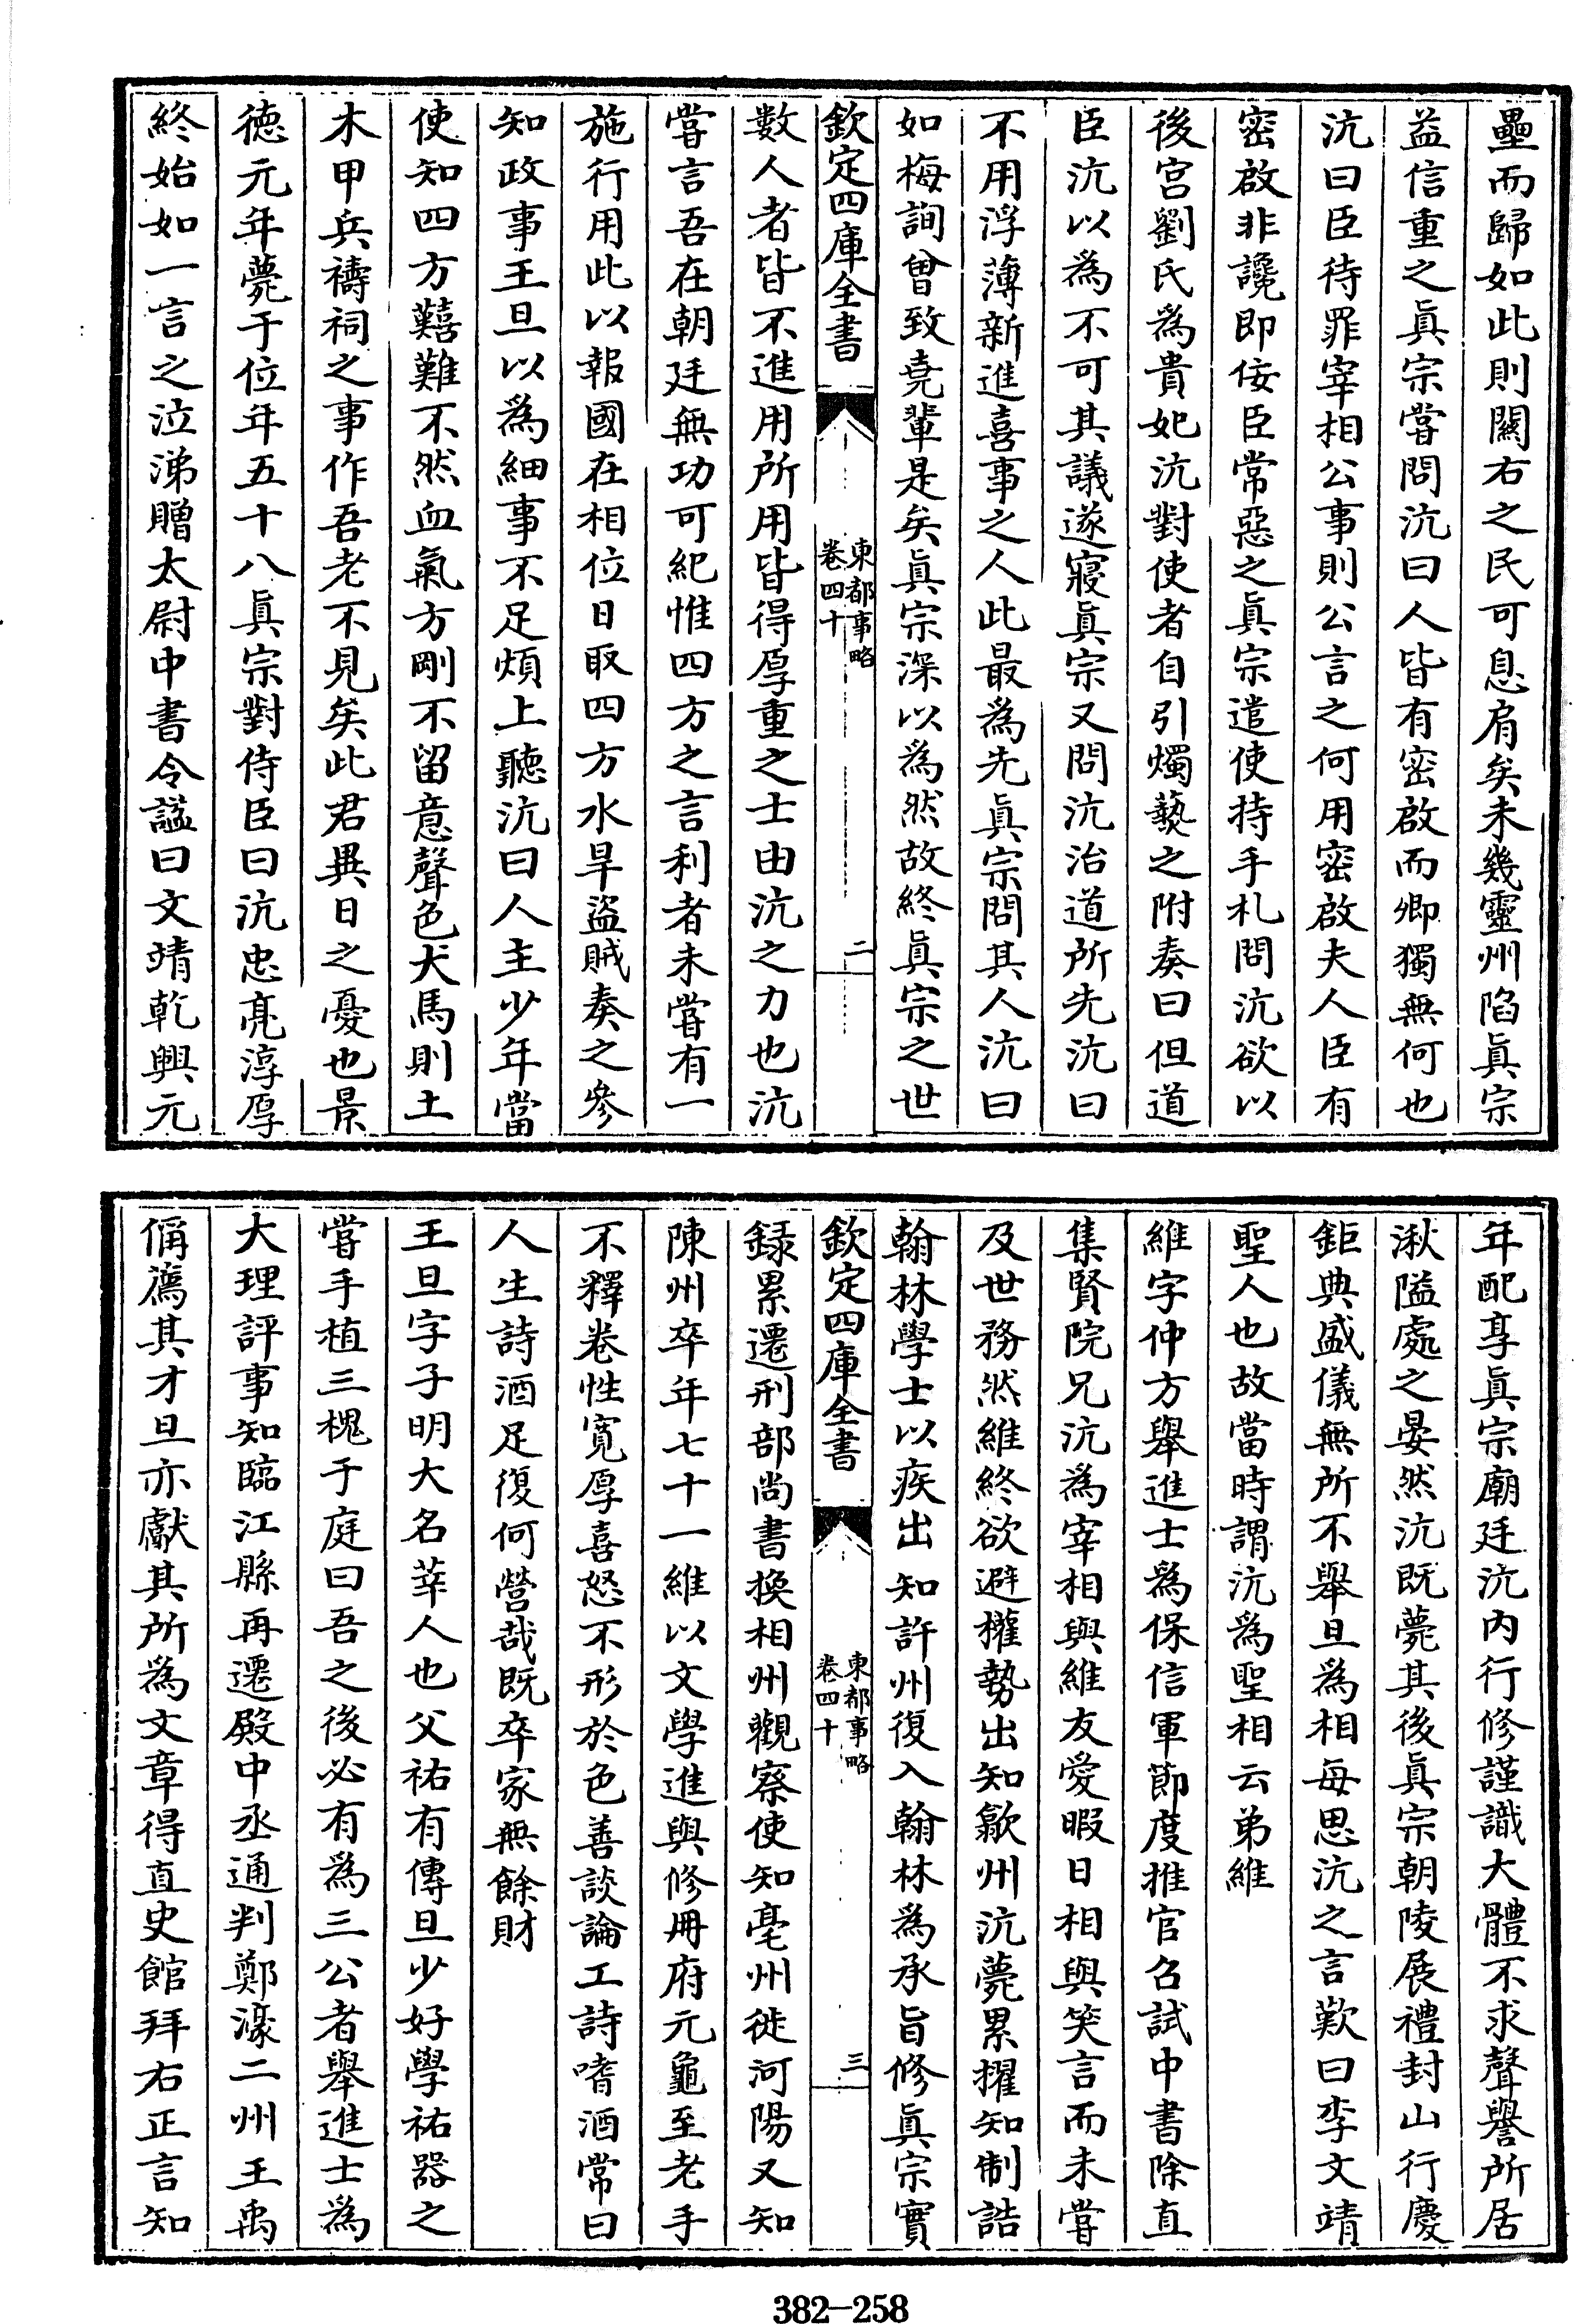 壘而歸如此則關右之民可息肩矣未幾靈州陷眞宗
益信重之眞宗嘗問沆曰人皆有密啟而卿獨無何也
沆曰臣待罪宰相公事則公言之何用密啟夫人臣有
密啟非讒即佞臣常惡之眞宗遣使持手札問沆欲以
後宮劉氏為貴妃沆對使者自引燭爇之附奏曰但道
臣沆以為不可其議遂寢眞宗又問沆治道所先沆曰
不用浮薄新進喜事之人此最為先眞宗問其人沆曰
如梅詢曾致堯輩是矣眞宗深以為然故終眞宗之世
欽定四庫全書
東都事略
卷四十
二
數人者皆不進用所用皆得厚重之士由沆之力也沆
嘗言吾在朝廷無功可紀惟四方之言利者未嘗有一
施行用此以報國在相位日取四方水旱盜賊奏之參
知政事王旦以為細事不足煩上聽沆曰人主少年當
使知四方囏難不然血氣方剛不留意聲色犬馬則土
木甲兵禱祠之事作吾老不見矣此君異日之憂也景
德元年薨于位年五十八眞宗對侍臣曰沆忠亮淳厚
終始如一言之泣涕贈太尉中書令諡曰文靖乾興元
年配享眞宗廟廷沆內行修謹識大體不求聲譽所居
湫隘處之晏然沆既薨其後眞宗朝陵展禮封山行慶
鉅典盛儀無所不舉旦為相每思沆之言歎曰李文靖
聖人也故當時謂沆為聖相云弟維
維字仲方舉進士為保信軍節度推官召試中書除直
集賢院兄沆為宰相與維友愛暇日相與笑言而未嘗
及世務然維終欲避權勢出知歙州沆薨累擢知制誥
翰林學士以疾出知許州復入翰林為承旨修眞宗實
欽定四庫全書
東都事略
卷四十
三
録累遷刑部尚書換相州觀察使知亳州徙河陽又知
陳州卒年七十一維以文學進與修冊府元龜至老手
不釋卷性寬厚喜怒不形於色善談論工詩嗜酒常曰
人生詩酒足復何營哉既卒家無餘財
王旦字子明大名莘人也父祐有傳旦少好學祐器之
嘗手植三槐于庭曰吾之後必有為三公者舉進士為
大理評事知臨江縣再遷殿中丞通判鄭濠二州王禹
偁薦其才旦亦獻其所為文章得直史館拜右正言知
382-258